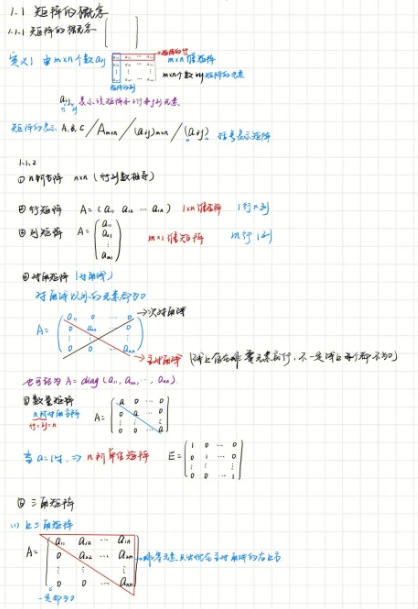 1.1 矩阵的概念
1.1.1 矩阵的概念
定义1 由m×n个数aij
矩阵的行
m×n 矩阵
m×n个数aij 矩阵的元素
矩阵的列
aij 表示该矩阵第i行第j列元素
矩阵的表示 A, B, C / Am×n / (aij)m×n / (aij) 括号表示矩阵
1.1.2
① n阶方阵 n×n (行列数相等)
② 行矩阵 A=(a11 a12 ⋯ a1n) 1×n 矩阵 1行n列
③ 列矩阵 A= a11 a21 ⋮ am1 m×1 矩阵 m行1列
④ 对角矩阵 (对角线)
对角线以外的元素都为0
次对角线
A= a11 0 ⋯ 0
0 a22 ⋯ 0
⋮
0 0 ⋯
主对角线 (线上存在非零元素就行,不一定线上每个都不为0)
也可记为 A=diag(a11, a22, ⋯, ann)
⑤ 数量矩阵
n阶对角方阵
行=列=n
A= a 0 ⋯ 0
0 a ⋯ 0
⋮
0 0 ⋯ a
当a=1时, ⇒ n阶单位矩阵 E= 1 0 ⋯ 0
0 1 ⋯ 0
⋮
0 0 ⋯ 1
⑥ 三角矩阵
(1) 上三角矩阵
A= a11 a12 ⋯ a1n
0 a22 ⋯ a2n
⋮
0 0 ⋯ ann
非零元素只出现在主对角线的右上方
一定都为0